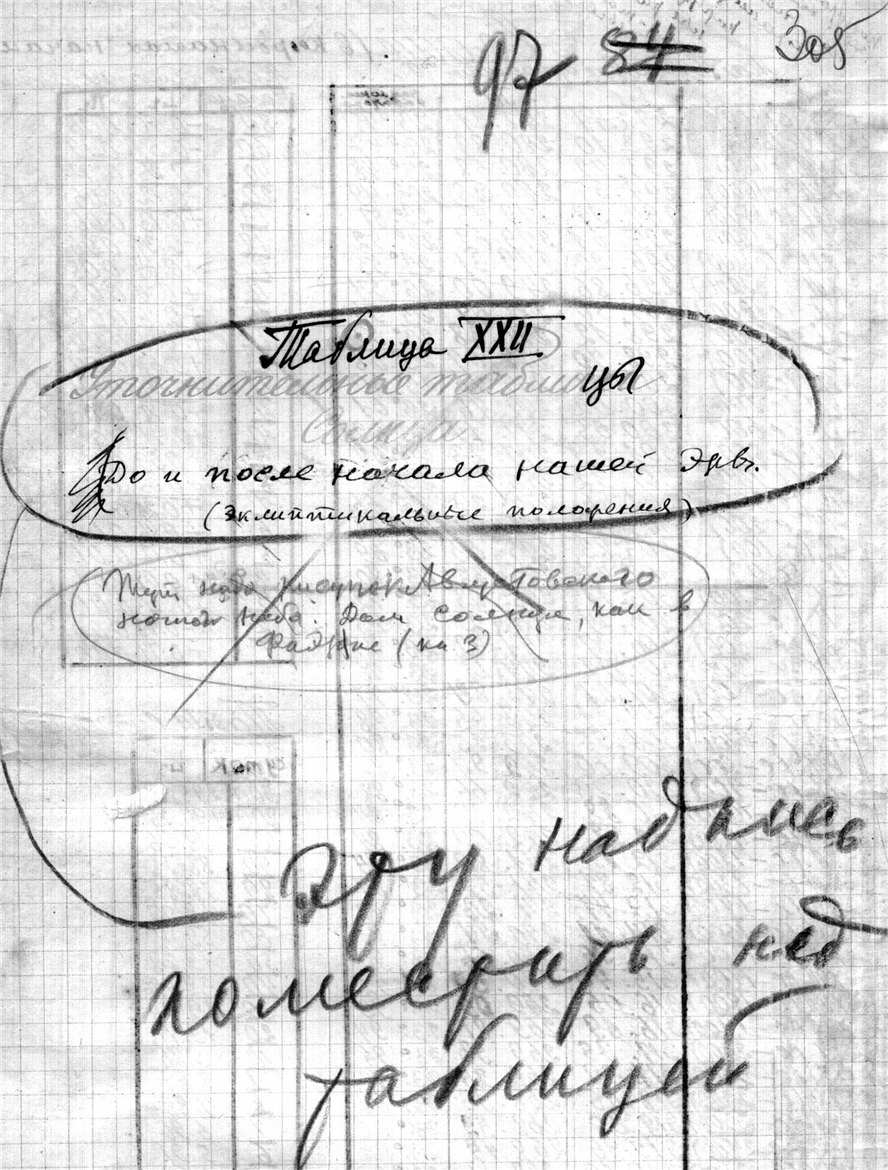 97 84 305
Таблица XXII
Уточнительные таблицы
Солнца
До и после начала нашей эры.
(эклиптикальные положения)
Тут надо рисунок Августовского
ночного неба. Дом Солнца, как в
(на 3)
Эту надпись
поместить над
таблицей
суток